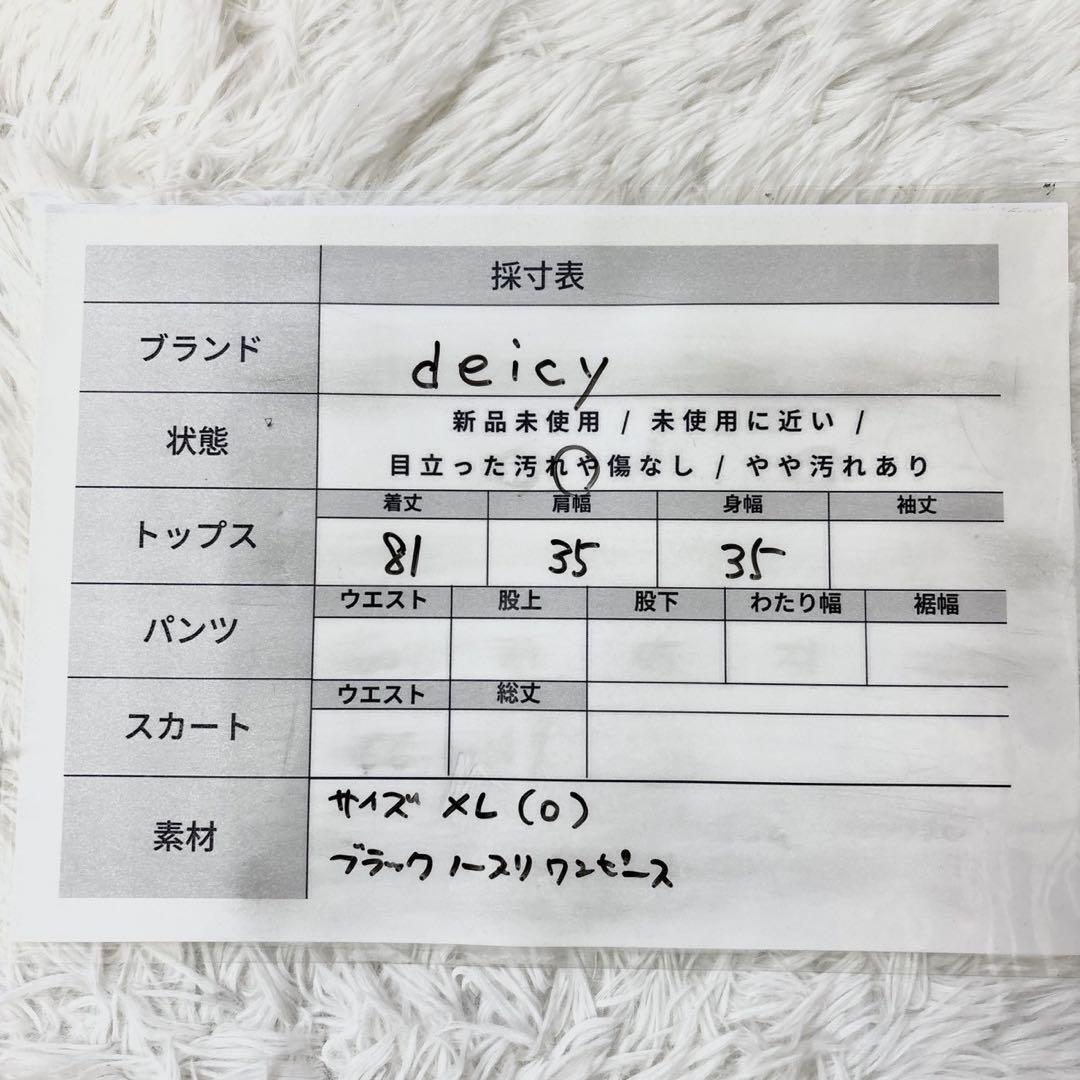 採寸表
ブランド deicy
状態 新品未使用 / 未使用に近い /
目立った汚れや傷なし / やや汚れあり
トップス 着丈 肩幅 身幅 袖丈
81 35 35
パンツ ウエスト 股上 股下 わたり幅 裾幅
スカート ウエスト 総丈
素材 サイズ XL (0)
ブラック ノースリ ワンピース